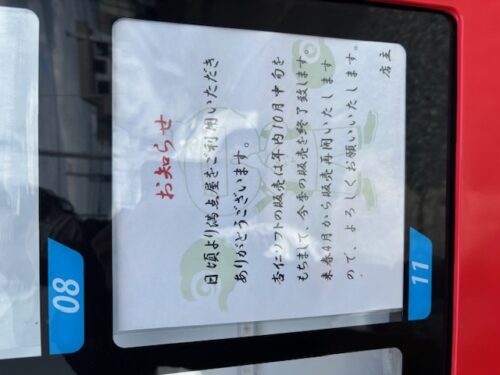 お知らせ
日頃より満点屋をご利用いただき
ありがとうございます。
杏仁ソフトの販売は年内10月中旬を
もちまして、今季の販売を終了致します。
来春4月から販売再開いたします
ので、よろしくお願いいたします。
店主
08
11